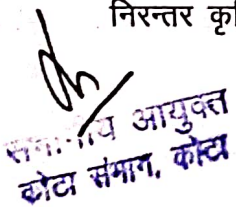 निरन्तर कृ
आयुक्त
कोटा संभाग, कोटा